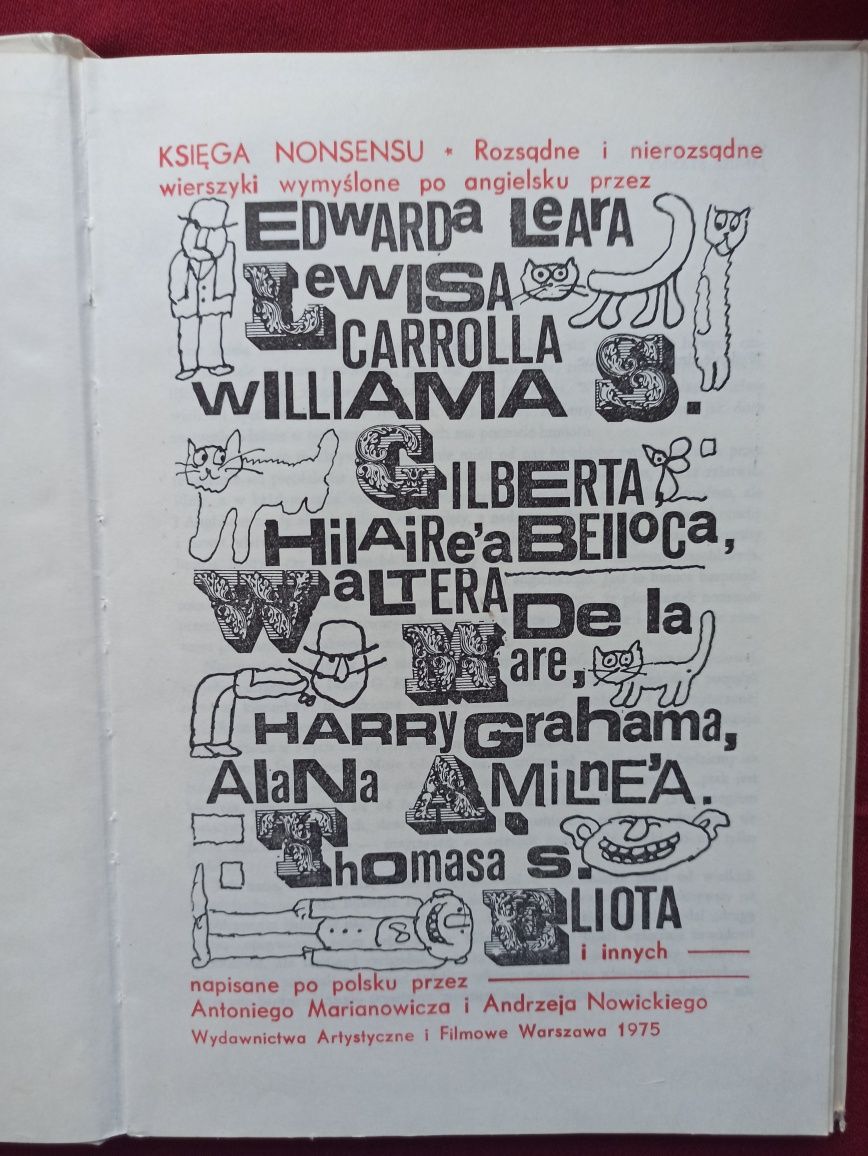 KSIĘGA NONSENSU * Rozsądne i nierozsądne
wierszyki wymyślone po angielsku przez
EDWARDa LeArA
LewISA
CARROLLA
wILLIAMA S.
GILBERTA
HilAiRe'a BEllOCa,
WaLTERA
De la
Mare,
HARRy Grahama,
AlaNa A. MiLnE'A.
Thomasa s.
ELIOTA
i innych
napisane po polsku przez
Antoniego Marianowicza i Andrzeja Nowickiego
Wydawnictwa Artystyczne i Filmowe Warszawa 1975